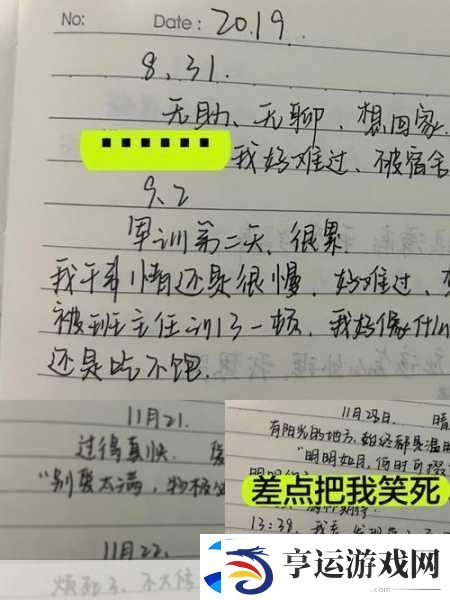 No: Date: 2019.
8.31.
无助、无聊、想回家.
我好难过、被宿舍
9.2
军训第二天、很累.
我干事情还是很慢，好难过、
被班主任训了一顿.我好像什么
还是吃不饱.
11月21.
过得真快.
"别爱太满，物极必
11月22.
烦死了、不大信
11月23日 晴
有阳光的地方，始终都是温
"明明如月，何时可掇
差点把我笑死
13:38.
亨运游戏网